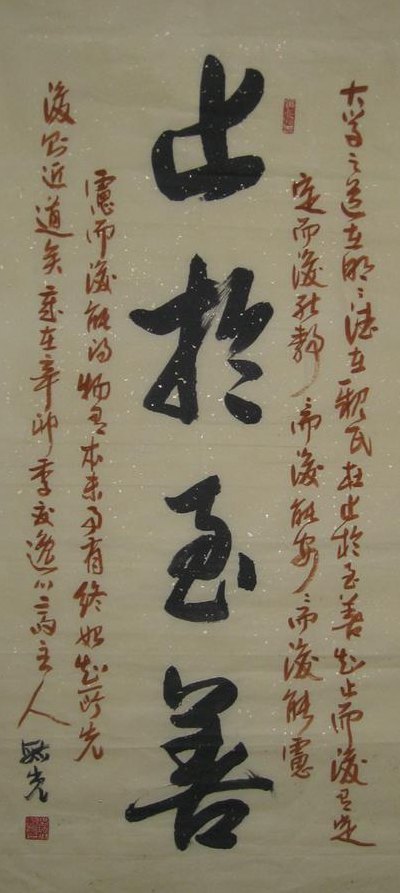 大学之道在明〻德在親民在止於至善知止而後有定
定而後能靜〻而後能安〻而後能慮
止於至善
慮而後能得物有本末事有終始知所先
後則近道矣歲在辛卯季夏
主人